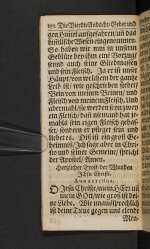 192 Die Vierdte Andacht / Gebet und
gen Himel aufgefahren / und das
himlische Wesen eingenommen.
So haben wir nun in unserm
Geblüte bey ihm eine Vorzug
semd auch seine Gliedmassen
und sein Fleisch. Ja er ist unser
Haupt / von welchem der gantze
Leib ist / wie geschrieben stehet /
Bein von meinen Beinen / und
Fleisch von meinem Fleisch. Und
abermahl / sie werden seyn zwey
ein Fleisch / dan niemand hat je-
mahls sein eigen fleisch gehas-
set / sondern er pfleget sein und
nehret es. Diß ist ein groß Ge-
heimnis / Ich sage aber von Chri-
sto und seiner Gemeine / spricht
der Apostel / Amen.
Hertzlicher Trost der Wunden
Jesu Christi.
O Jesu Christe / mein HErr un
mein GOtt / wie groß ist dei-
ne Liebe. Wie unaussprechlich
ist deine Treue gegen uns elende
Men-